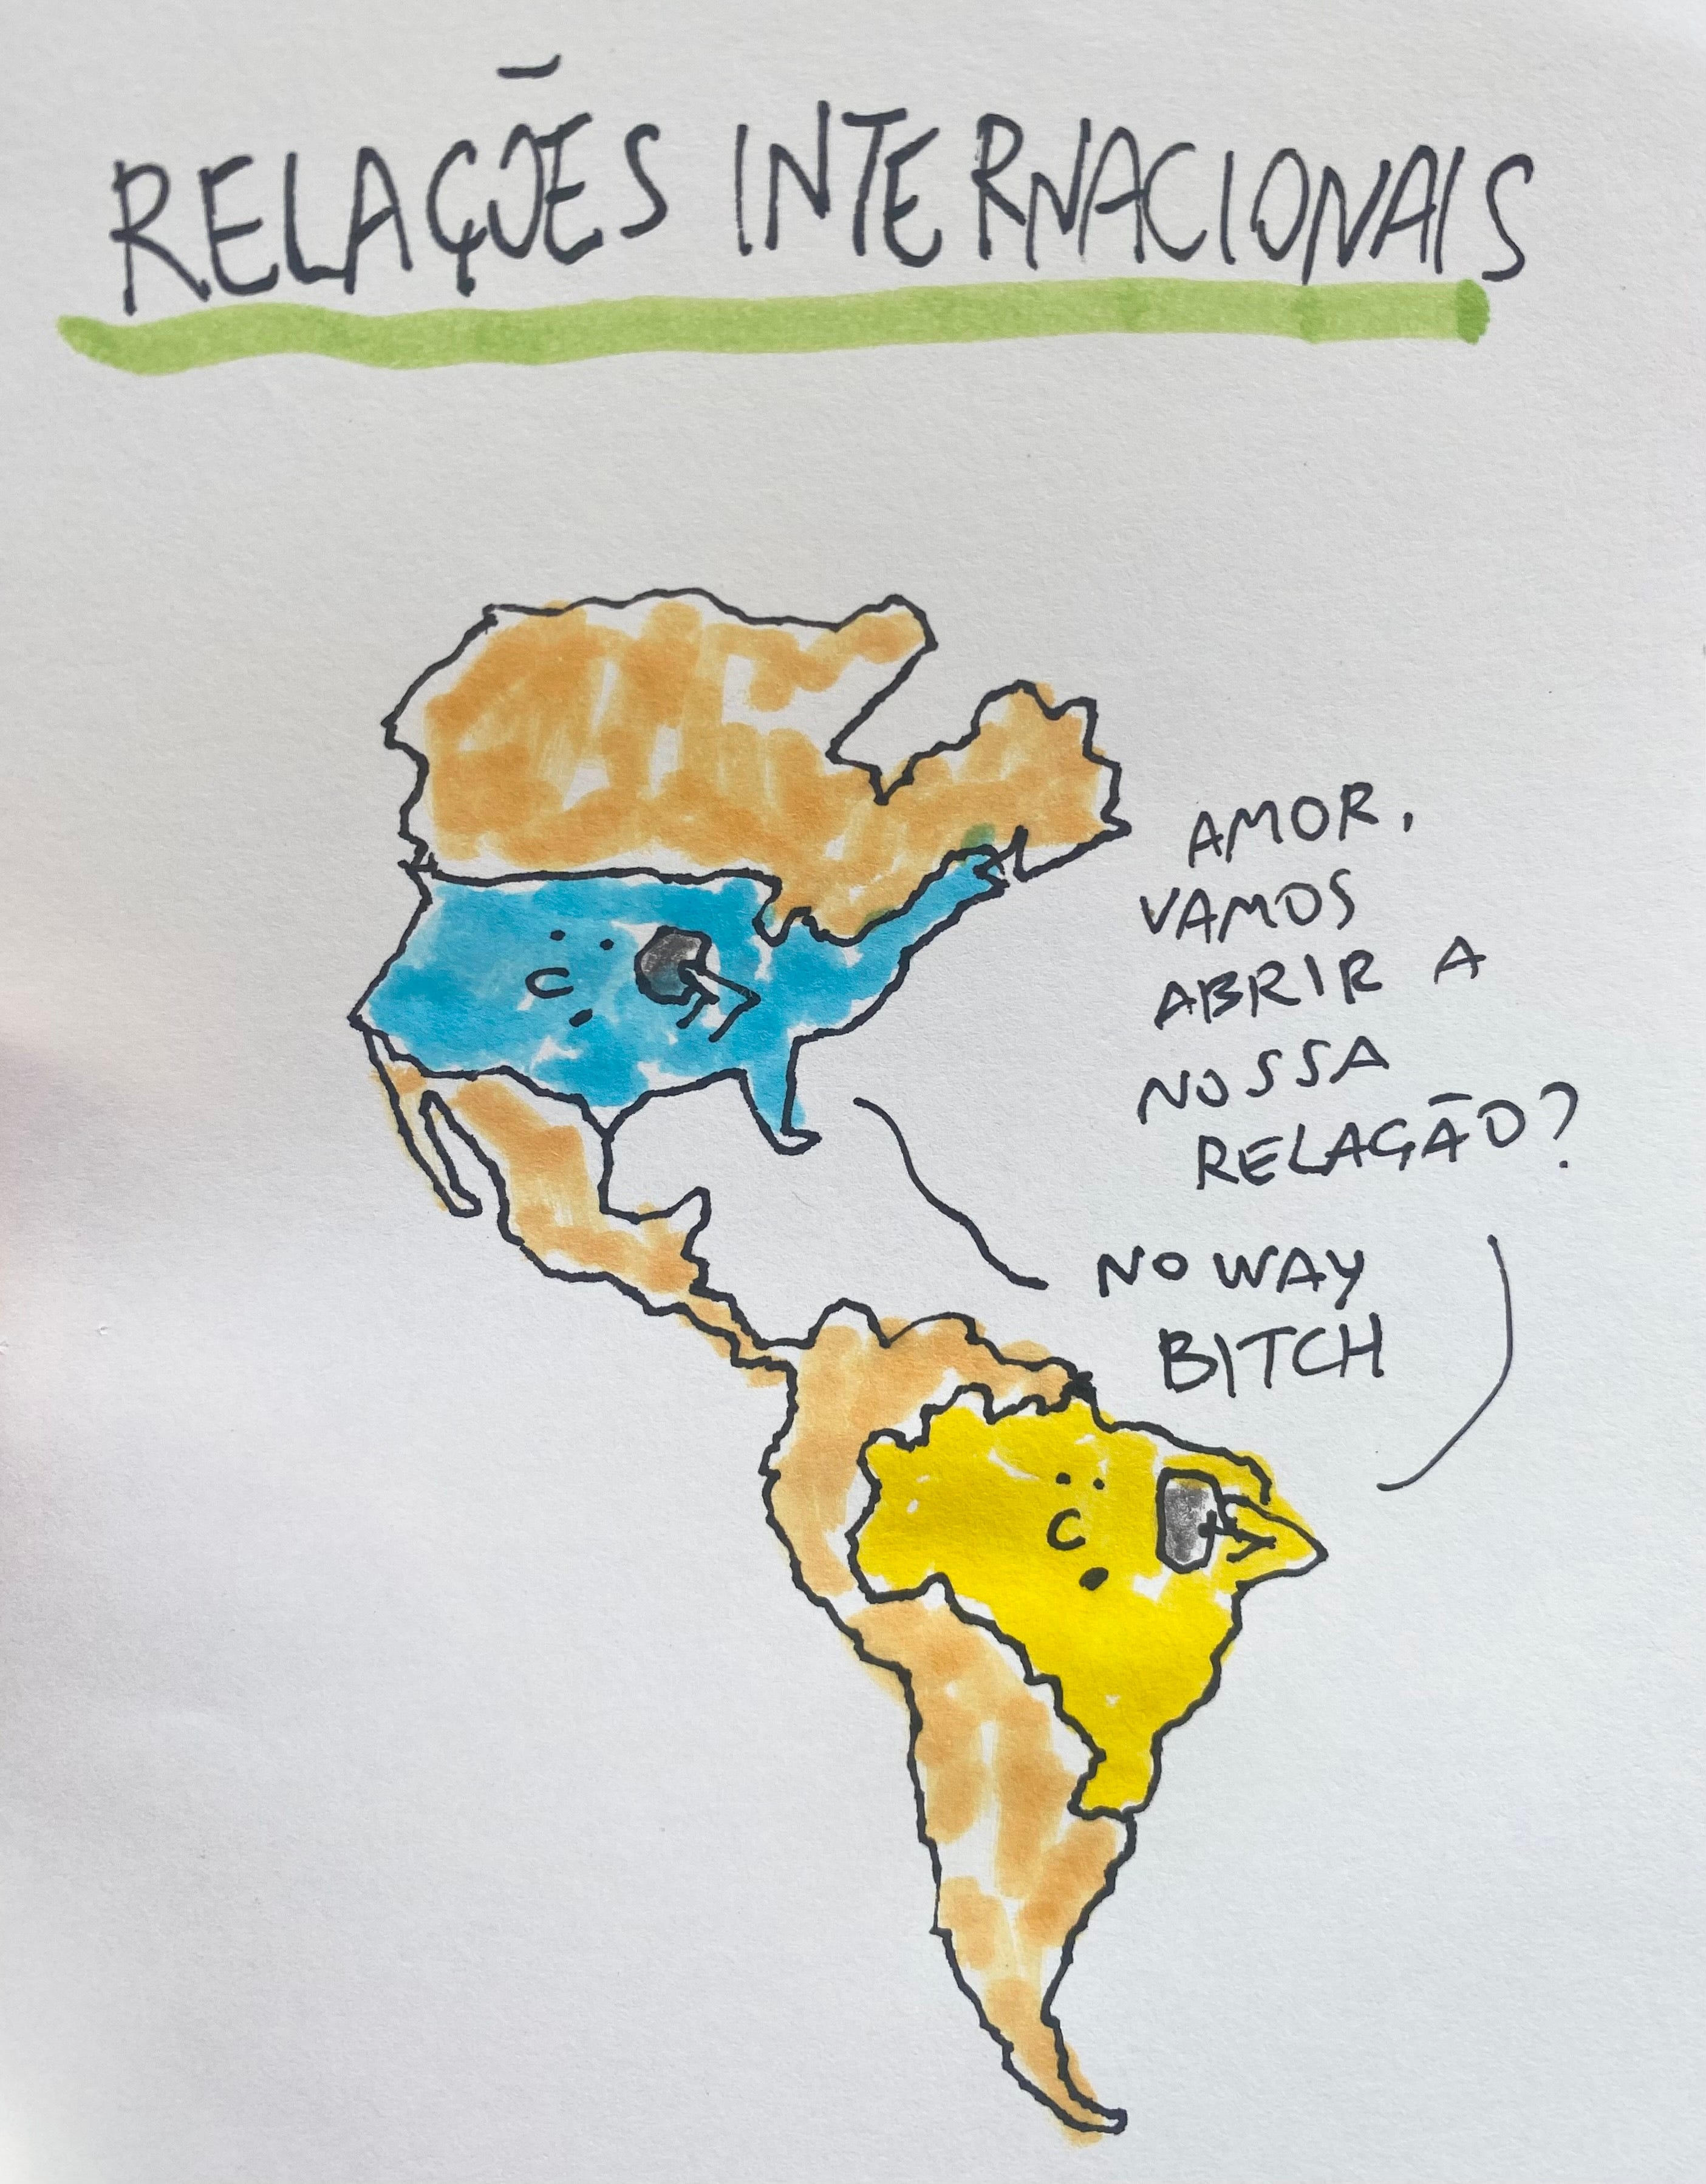 RELAÇÕES INTERNACIONAIS
AMOR,
VAMOS
ABRIR A
NOSSA
RELAÇÃO?
NO WAY
BITCH